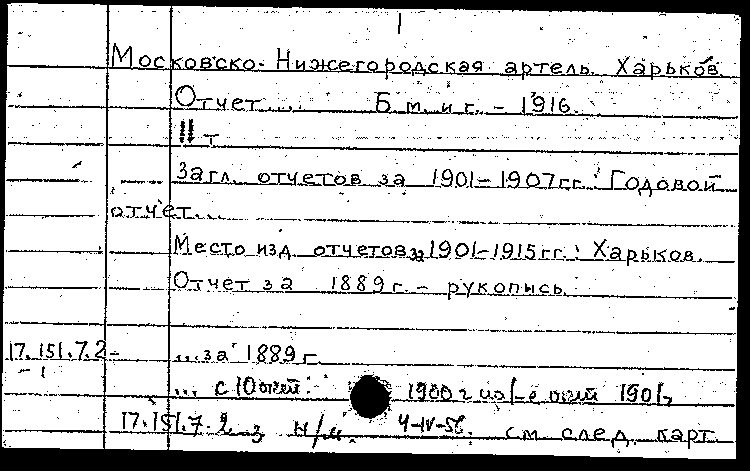 Московско-Нижегородская артель. Харьков.
Отчет.... Б.м. и г. - 1916.
11 т
Загл. отчетов за 1901-1907гг.: Годовой
отчет...
Место изд. отчетов за 1901-1915гг.: Харьков.
Отчет за 1889г. - рукопись.
17.151.7.2- ...за 1889 г.
-1
... с 10 1900 г по 1-е 1901,
17.151.7.2 н/м. 4-IV-56. см. след. карт.